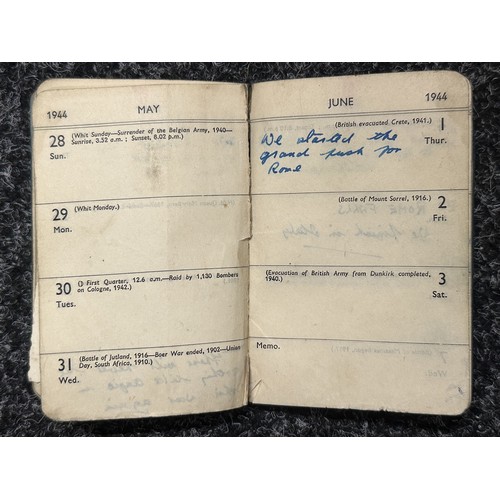 1944 MAY
28 (Whit Sunday—Surrender of the Belgian Army, 1940—
Sun. Sunrise, 3.52 a.m ; Sunset, 8.02 p.m.)
29 (Whit Monday.)
Mon.
30 () First Quarter, 12.6 a.m.—Raid by 1,130 Bombers
Tues. on Cologne, 1942.)
31 (Battle of Jutland, 1916—Boer War ended, 1902—Union
Wed. Day, South Africa, 1910.)
JUNE 1944
(British evacuated Crete, 1941.) 1
Thur.
We started the
grand push for
Rome
(Battle of Mount Sorrel, 1916.) 2
Fri.
(Evacuation of British Army from Dunkirk completed, 3
1940.) Sat.
Memo.